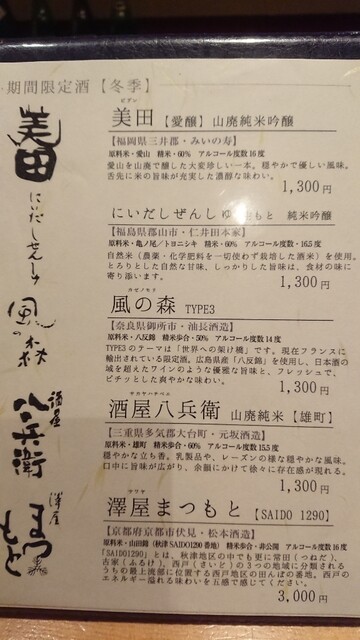 期間限定酒【冬季】
美田
にいだしぜんしゅ
風の森
酒屋
八兵衛
澤屋
まつもと
ビデン
美田【愛醸】山廃純米吟醸
【福岡県三井郡・みいの寿】
原料米・愛山 精米・60% アルコール度数16度
愛山を山廃で醸した大変珍しい一本。穏やかで優しい風味。
舌先に米の旨味が充実した濃醇な味わい。
1,300円
にいだしぜんしゅ 生もと 純米吟醸
【福島県郡山市・仁井田本家】
原料米・亀ノ尾/トヨニシキ 精米・60% アルコール度数・16.5度
自然米(農薬・化学肥料を一切使わず栽培した酒米)を使用。
とろりとした自然な甘味、しっかりした旨味は、食材の味に
寄り添います。
1,300円
カゼノモリ
風の森 TYPE3
【奈良県御所市・油長酒造】
原料米・八反錦 精米歩合・50% アルコール度数14度
TYPE3のテーマは「世界への架け橋」です。現在フランスに
輸出されている限定酒。広島県産「八反錦」を使用し、日本酒の
域を超えたワインのような優雅な旨味と、フレッシュで、
ピチッとした爽やかな味わい。
1,300円
サカヤハチベエ
酒屋八兵衛 山廃純米【雄町】
【三重県多気郡大台町・元坂酒造】
原料米・雄町 精米・60% アルコール度数15.5度
穏やかな立ち香。乳製品や、レーズンの様な穏やかな風味。
口中に旨味が広がり、余韻にかけて徐々に存在感が現れる。
1,300円
サワヤ
澤屋まつもと【SAIDO 1290】
【京都府京都市伏見・松本酒造】
原料米・山田錦(秋津SAIDO1290番地) 精米歩合・非公開 アルコール度数16度
「SAIDO1290」とは、秋津地区の中でも更に常田(つねだ)、
古家(ふるけ)、西戸(さいど)の3つの地域に分類される
うちの最上流部に位置する西戸地区の田んぼの番地。西戸の
エネルギー溢れる味わいを五感で感じてください。
3,000円